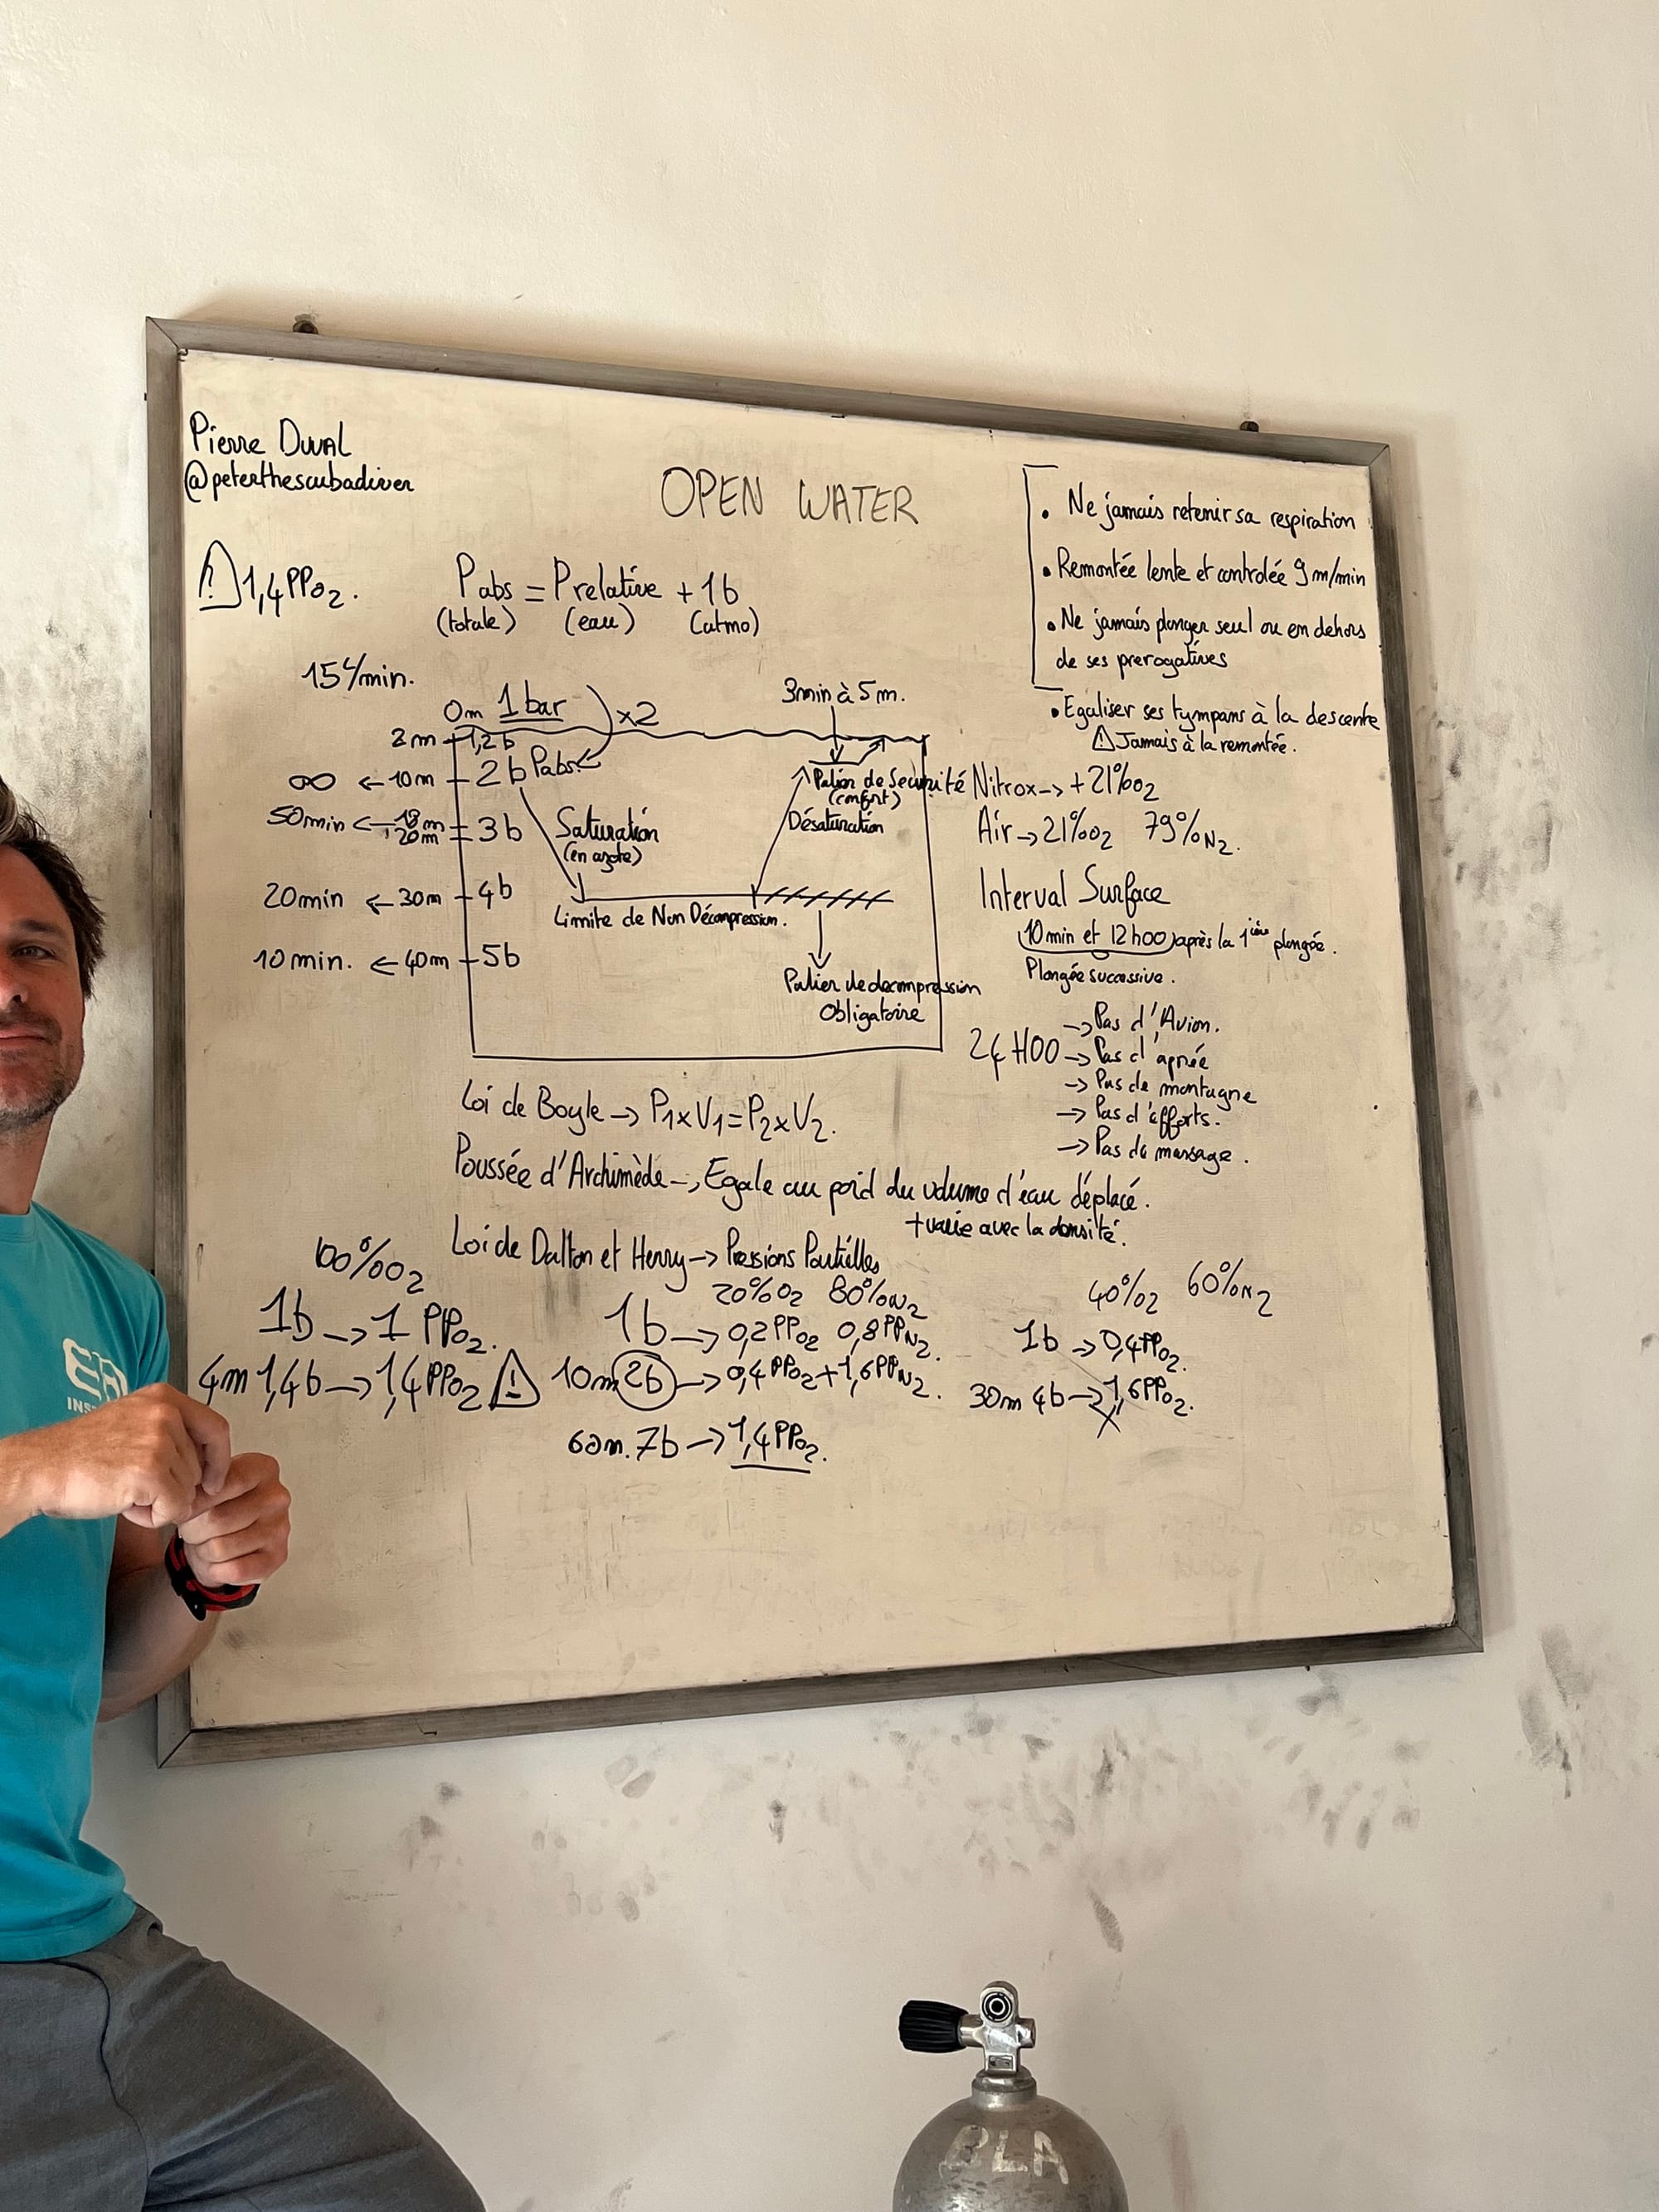 Pierre Duval
@peterthescubadiver
OPEN WATER
1,4PPO2.
Pabs = Prelative + 1b
(totale) (eau) (atmo)
• Ne jamais retenir sa respiration
• Remontée lente et controlée 9m/min
• Ne jamais plonger seul ou en dehors
de ses prerogatives
• Egaliser ses tympans à la descente
! Jamais à la remontée.
15L/min.
0m 1 bar x2
3min à 5m.
2m 1,2b
∞ ← 10m 2b Pabs
50min ← 18m
20m 3b
20min ← 30m 4b
10min. ← 40m 5b
Saturation
(en azote)
Palier de Securité
(confort)
Désaturation
Limite de Non Décompression.
Palier de decompression
Obligatoire
Nitrox → +21%O2
Air → 21%O2 79%N2.
Interval Surface
10min et 12h00 après la 1ière plongée.
Plongée successive.
24H00 → Pas d'Avion.
→ Pas d'apnée
→ Pas de montagne
→ Pas d'efforts.
→ Pas de massage.
Loi de Boyle → P1xV1=P2xV2.
Poussée d'Archimède → Egale au poid du volume d'eau déplacé.
+ varie avec la densité.
Loi de Dalton et Henry → Pressions Partielles
100%O2
1b → 1 PPO2.
4m 1,4b → 1,4PPO2 !
20%O2 80%N2
1b → 0,2PPO2 0,8PPN2.
10m 2b → 0,4PPO2+1,6PPN2.
60m. 7b → 1,4PPO2.
40%O2 60%N2
1b → 0,4PPO2.
30m 4b → 1,6PPO2.
BLA